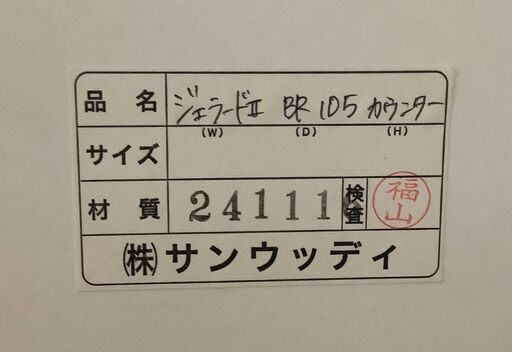 品名 ジェラードⅡ BR 105 カウンター
サイズ (W) (D) (H)
材質 24111 検査 福山
㈱サンウッディ